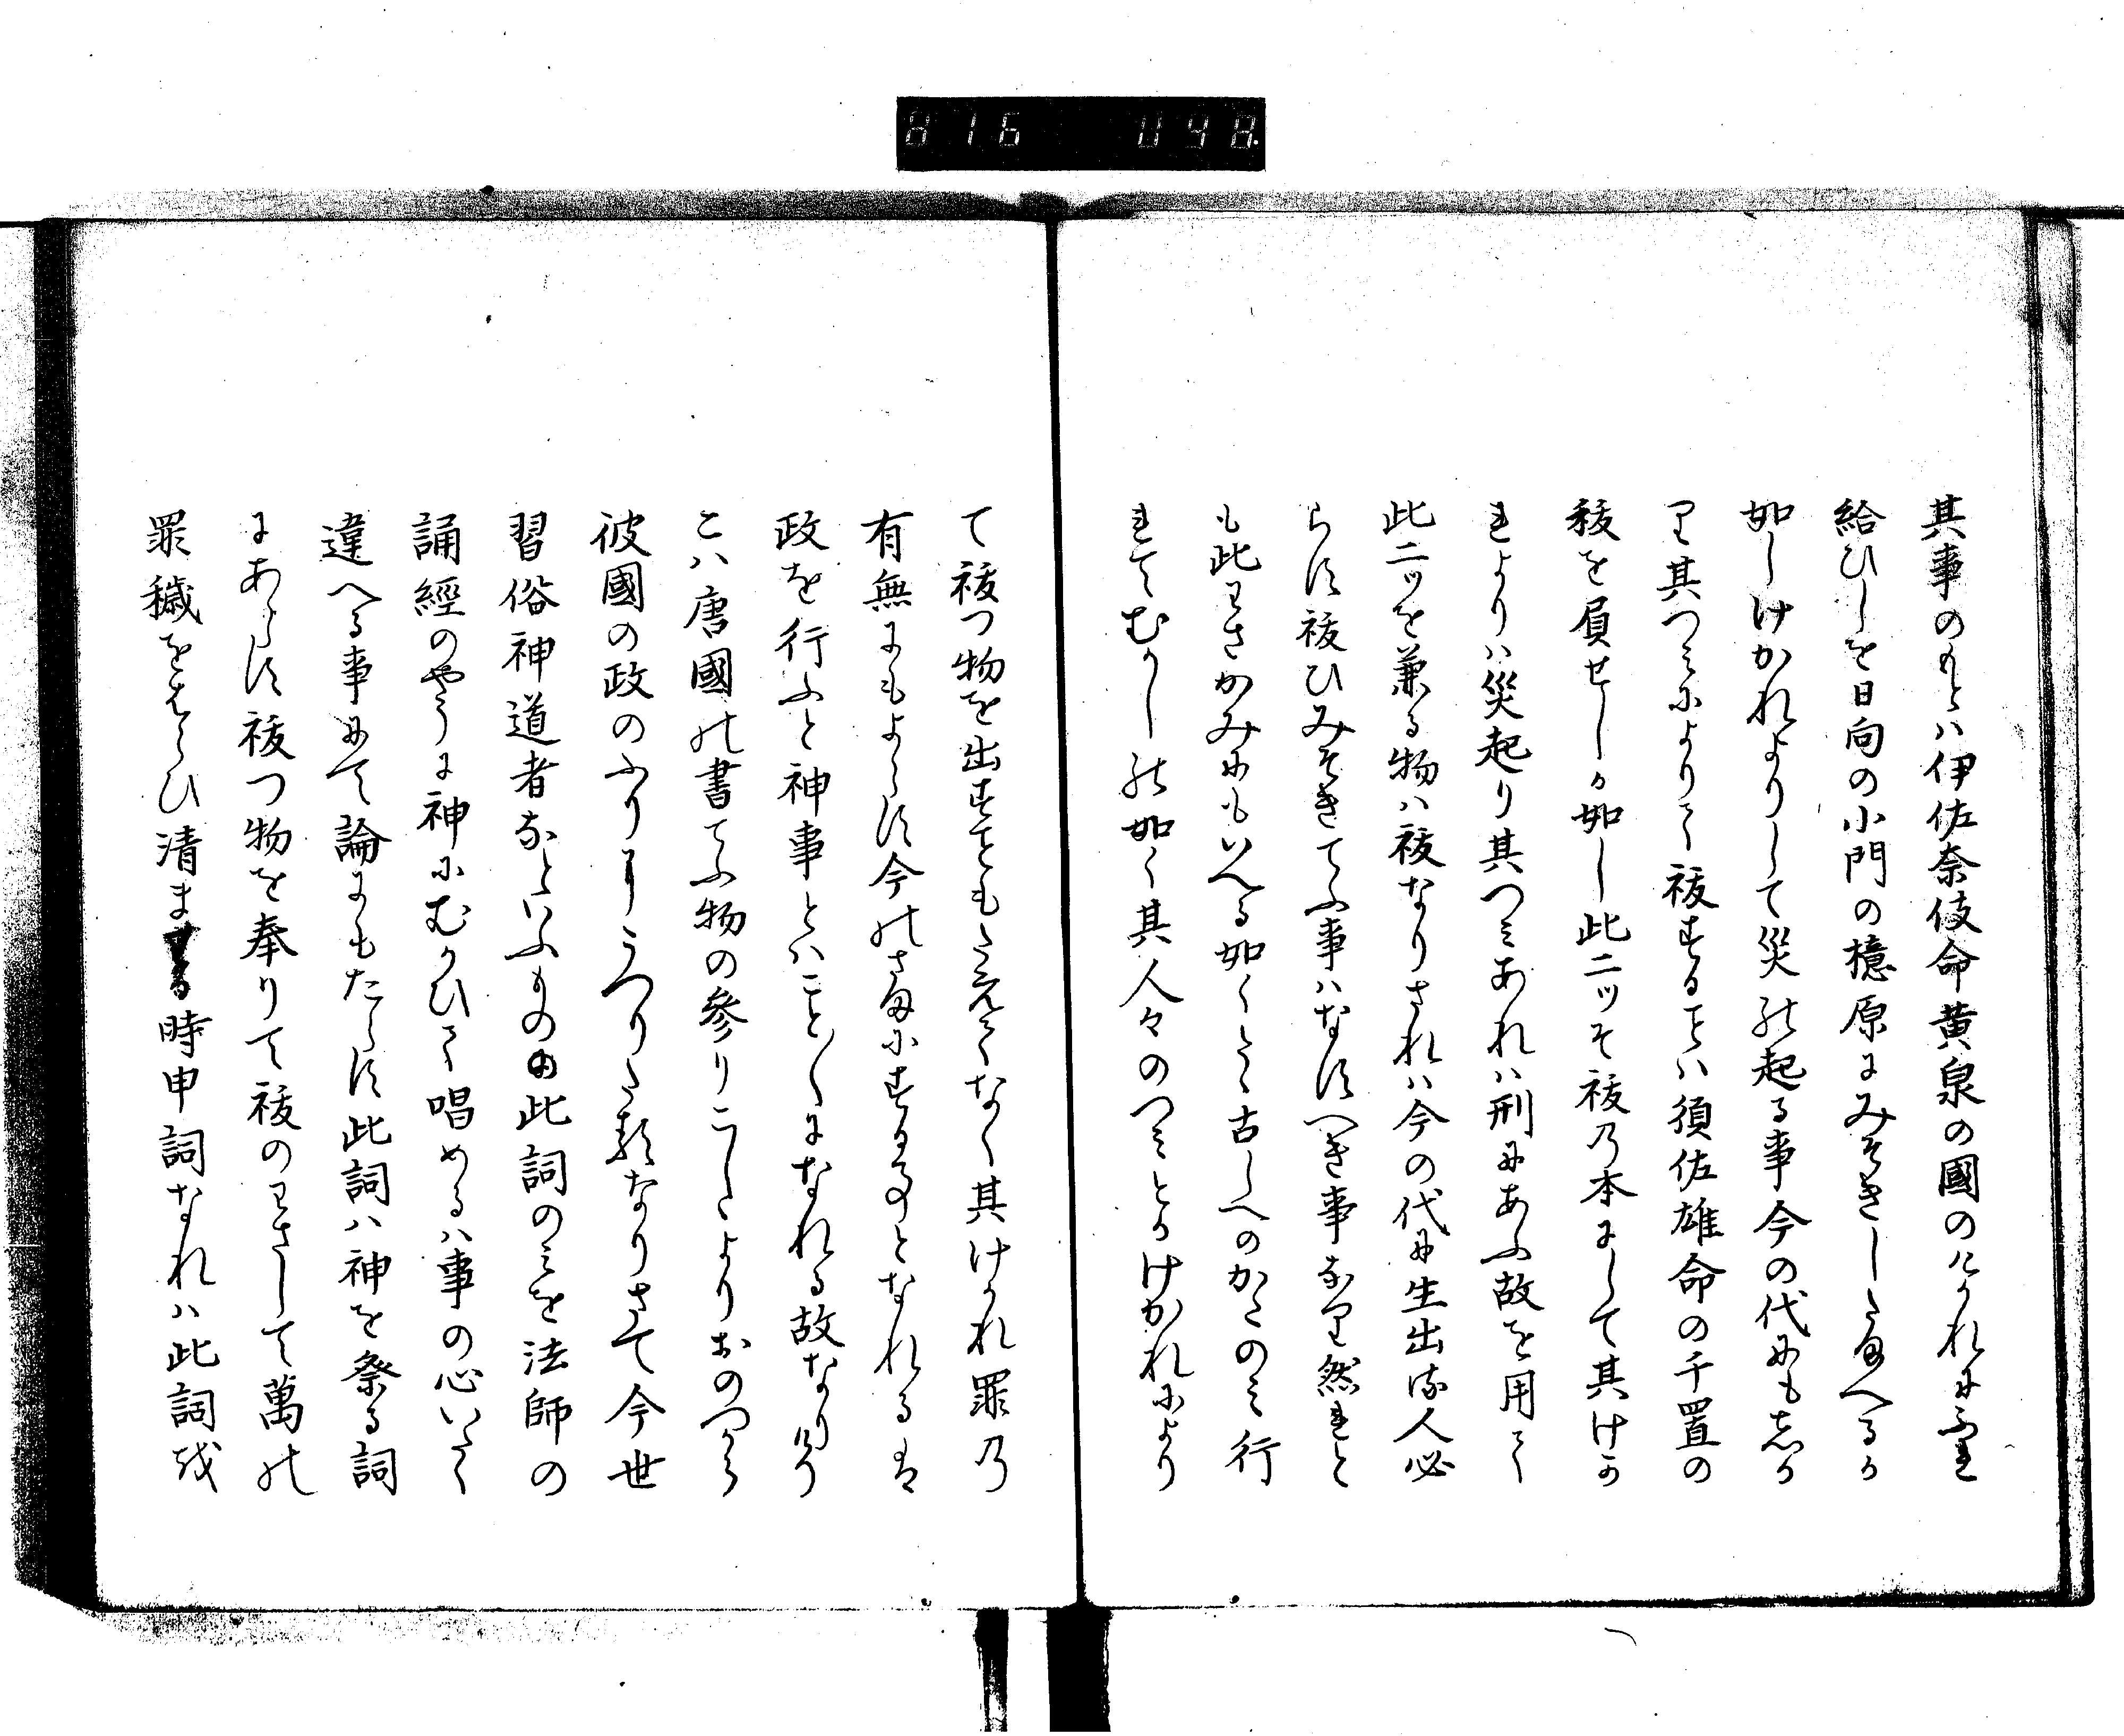 816 098
其事のもとハ伊佐奈伎命黄泉の國のけかれにふれ
給ひしを日向の小門の檍原にみそきしたまへるか
如しけかれよりして災の起る事今の代にも志か
り其つみによりて祓することハ須佐雄命の千置の
祓を屓せしか如し此二ツそ祓乃本にして其けか
れよりハ災起り其つみあれハ刑にあふ故を用て
此二ツを兼る物ハ祓なりされハ今の代に生出る人必
らす祓ひみそきてふ事ハなすへき事なり然れと
も此わさかみにもいへる如くして古しへのかたのみ行
れてむかしの如く其人々のつみとかけかれにより
て祓つ物を出すこともたえてなく其けかれ罪乃
有無にもよらす今のさまにすることとなれるは
政を行ふと神事とハことことになれる故なりけり
こハ唐國の書てふ物の参りこしよりおのつから
彼國の政のふりにうつりた類なりさて今世
習俗神道者なといふものゝ此詞のみを法師の
誦經のやうに神にむかひて唱めるハ事の心いたく
違へる事にて論にもたらす此詞ハ神を祭る詞
にあらす祓つ物を奉りて祓のわさして萬の
罪穢をはらひ清まする時申詞なれハ此詞を